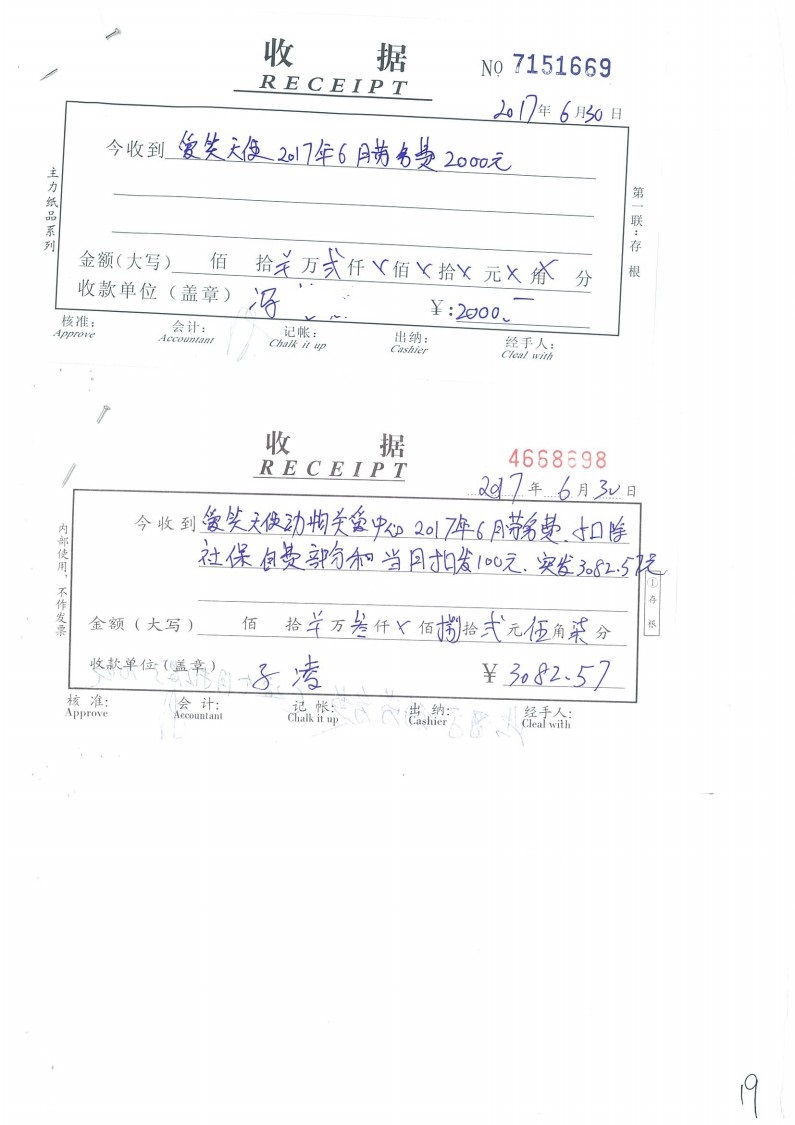 收 据
RECEIPT
№ 7151669
2017年6月30日
今收到 爱笑天使2017年6月劳务费2000元
金额(大写) 佰 拾¥万贰仟×佰×拾×元×角×分
收款单位(盖章) 冯
¥:2000.一
核准: 会计: 记帐: 出纳: 经手人:
Approve Accountant Chalk it up Cashier Cleal with
主力纸品系列
第一联:存根
收 据
RECEIPT
4668698
2017年6月30日
今收到 爱笑天使动物关爱中心2017年6月劳务费、扣除
社保自费部分和当月扣发100元、实发3082.57元
金额(大写) 佰 拾¥万叁仟×佰捌拾贰元伍角柒分
收款单位(盖章) 子凌
¥ 3082.57
核准: 会计: 记帐: 出纳: 经手人:
Approve Accountant Chalk it up Cashier Cleal with
内部使用、不作发票
①存根
19